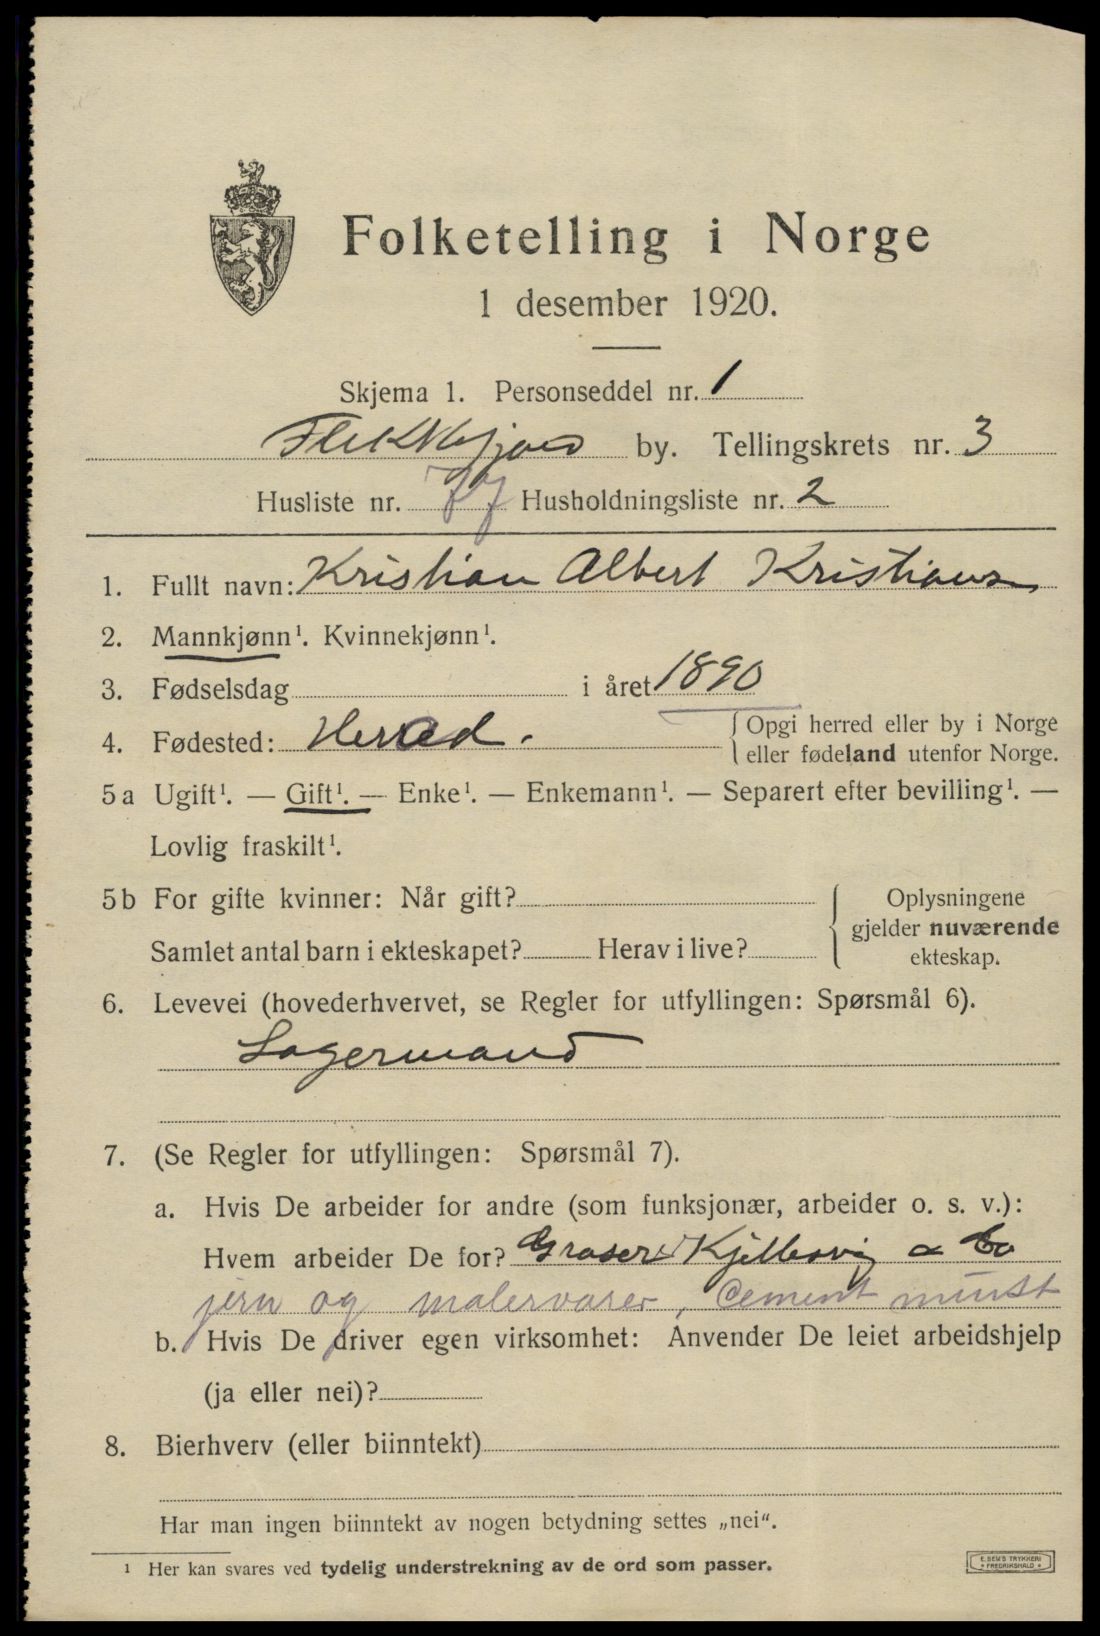 Folketelling i Norge
1 desember 1920.
Skjema 1. Personseddel nr. 1
Flekkefjord by. Tellingskrets nr. 3
Husliste nr. 77 Husholdningsliste nr. 2
1. Fullt navn: Kristian Albert Kristians
2. Mannkjønn¹. Kvinnekjønn¹.
3. Fødselsdag i året 1890
4. Fødested: Herad. Opgi herred eller by i Norge
eller fødeland utenfor Norge.
5a Ugift¹. — Gift¹. — Enke¹. — Enkemann¹. — Separert efter bevilling¹. —
Lovlig fraskilt¹.
5b For gifte kvinner: Når gift?
Samlet antal barn i ekteskapet? Herav i live?
Oplysningene
gjelder nuværende
ekteskap.
6. Levevei (hovederhvervet, se Regler for utfyllingen: Spørsmål 6).
Lagermand
7. (Se Regler for utfyllingen: Spørsmål 7).
a. Hvis De arbeider for andre (som funksjonær, arbeider o. s. v.):
Hvem arbeider De for? Kjellesvig & Co
jern og malervarer, Cement
b. Hvis De driver egen virksomhet: Anvender De leiet arbeidshjelp
(ja eller nei)?
8. Bierhverv (eller biinntekt)
Har man ingen biinntekt av nogen betydning settes „nei".
¹ Her kan svares ved tydelig understrekning av de ord som passer.
E. SEM'S TRYKKERI
FREDRIKSHALD